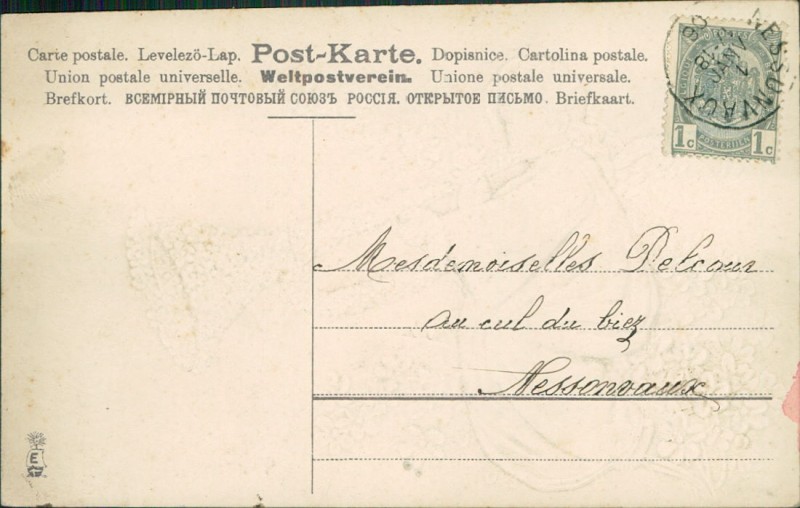 Carte postale. Levelezö-Lap. Post-Karte. Dopisnice. Cartolina postale.
Union postale universelle. Weltpostverein. Unione postale universale.
Brefkort. ВСЕМIРНЫЙ ПОЧТОВЫЙ СОЮЗЪ РОССIЯ. ОТКРЫТОЕ ПИСЬМО. Briefkaart.
NESSONVAUX
1c POSTERIJEN 1c
Mesdemoiselles Delcour
au cul du biez
Nessonvaux
E